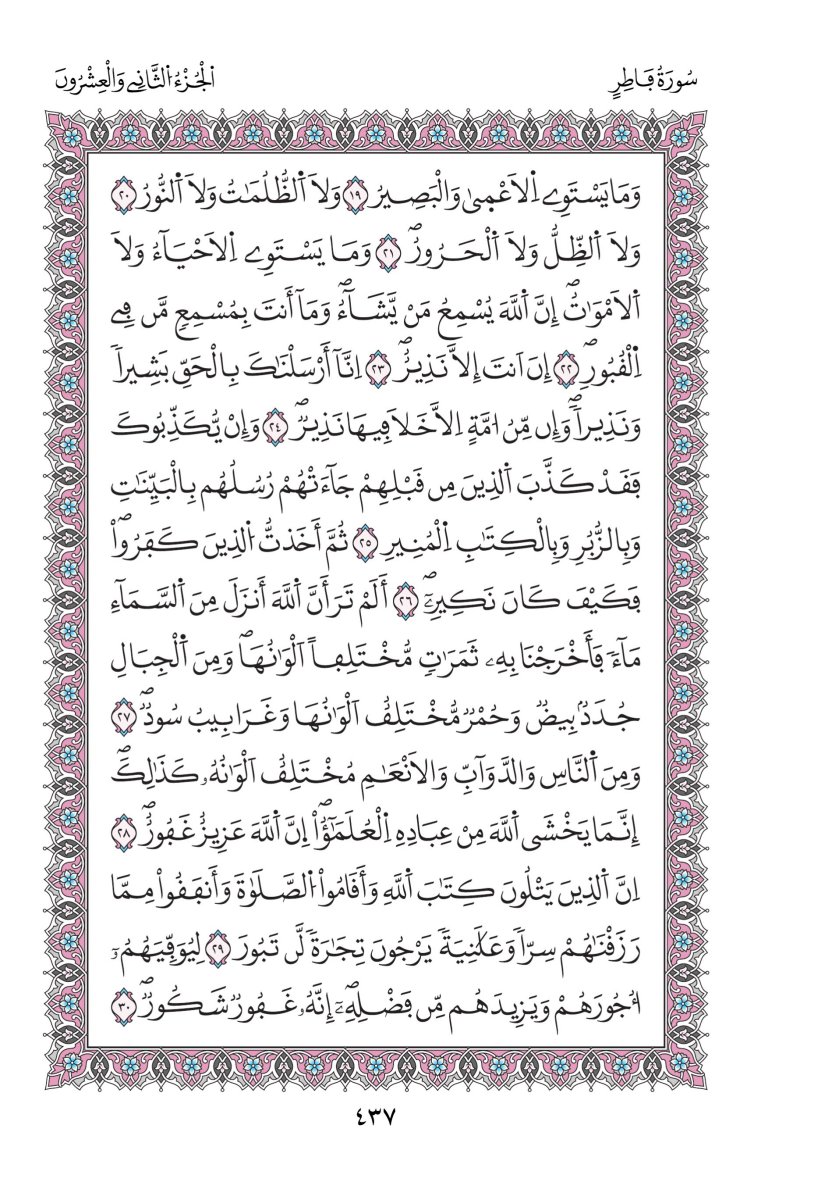 سُورَةُ فَاطِرٍ
اَلْجُزْءُ اُلثَّانِے وَالْعِشْرُونَ
وَمَا يَسْتَوِے اِ۬لَاعْم۪يٰ وَالْبَصِيرُ ١٩ وَلَا اَ۬لظُّلُمَٰتُ وَلَا اَ۬لنُّورُ ٢٠
وَلَا اَ۬لظِّلُّ وَلَا اَ۬لْحَرُورُۖ ٢١ وَمَا يَسْتَوِے اِ۬لَاحْيَآءُ وَلَا
اَ۬لَامْوَٰتُۖ إِنَّ اَ۬للَّهَ يُسْمِعُ مَنْ يَّشَآءُۖ وَمَآ أَنتَ بِمُسْمِعٖ مَّن فِے
اِ۬لْقُبُورِۖ ٢٢ إِنَ اَنتَ إِلَّا نَذِيرٌۖ ٢٣ اِنَّآ أَرْسَلْنَٰكَ بِالْحَقِّ بَشِيراٗ
وَنَذِيراٗۖ وَإِن مِّنُ ا۟مَّةٍ اِلَّا خَلَا فِيهَا نَذِيرٞۖ ٢٤ وَإِنْ يُّكَذِّبُوكَ
فَقَدْ كَذَّبَ اَ۬لذِينَ مِن قَبْلِهِمْ جَآءَتْهُمْ رُسُلُهُم بِالْبَيِّنَٰتِ
وَبِالزُّبُرِ وَبِالْكِتَٰبِ اِ۬لْمُنِيرِ ٢٥ ثُمَّ أَخَذتُّ اُ۬لذِينَ كَفَرُواْۖ
فَكَيْفَ كَانَ نَكِيرِۦٓۖ ٢٦ أَلَمْ تَرَ أَنَّ اَ۬للَّهَ أَنزَلَ مِنَ اَ۬لسَّمَآءِ
مَآءٗ فَأَخْرَجْنَا بِهِۦ ثَمَرَٰتٖ مُّخْتَلِفاً اَلْوَٰنُهَاۖ وَمِنَ اَ۬لْجِبَالِ
جُدَدُۢ بِيضٞ وَحُمْرٞ مُّخْتَلِفٌ اَلْوَٰنُهَا وَغَرَابِيبُ سُودٞۖ ٢٧
وَمِنَ اَ۬لنَّاسِ وَالدَّوَآبِّ وَالَانْعَٰمِ مُخْتَلِفٌ اَلْوَٰنُهُۥ كَذَٰلِكَۖ
إِنَّمَا يَخْشَى اَ۬للَّهَ مِنْ عِبَادِهِ اِ۬لْعُلَمَٰٓؤُاْۖ اِنَّ اَ۬للَّهَ عَزِيزٌ غَفُورٌۖ ٢٨
اِنَّ اَ۬لذِينَ يَتْلُونَ كِتَٰبَ اَ۬للَّهِ وَأَقَامُواْ اُ۬لصَّلَوٰةَ وَأَنفَقُواْ مِمَّا
رَزَقْنَٰهُمْ سِرّاٗ وَعَلَٰنِيَةٗ يَرْجُونَ تِجَٰرَةٗ لَّن تَبُورَ ٢٩ لِيُوَفِّيَهُمُۥٓ
أُجُورَهُمْ وَيَزِيدَهُم مِّن فَضْلِهِۦٓۖ إِنَّهُۥ غَفُورٞ شَكُورٞۖ ٣٠
٤٣٧